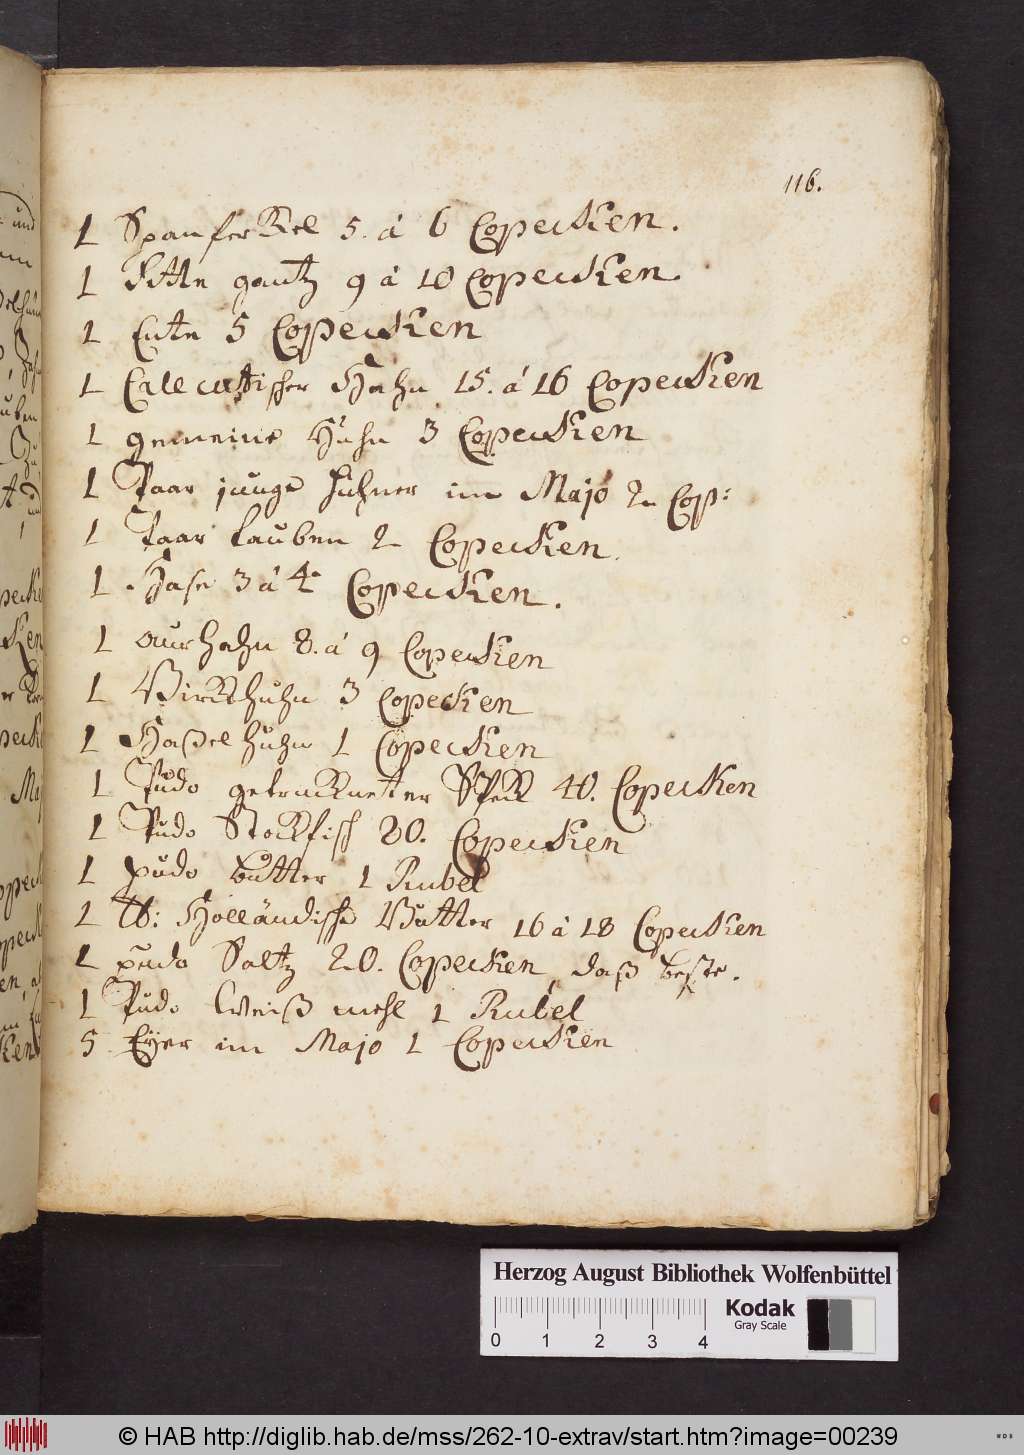 116.
1 Spanferkel 5. á 6 Copecken.
1 fette gantz 9 á 10 Copecken.
1 Ente 5 Copecken
1 Calecuttischer Hahn 15. á 16 Copecken
1 gemeine Huhn 3 Copecken
1 Paar junge Hühner im Majo 2 Cop:
1 Paar tauben 2 Copecken.
1 Hase 3 á 4 Copecken.
1 aurhahn 8. á 9 Copecken
1 Birckhuhn 3 Copecken
1 Haßel huhn 1 Copecken
1 Pudo getruckneter Speck 40. Copecken
1 Pudo Stockfisch 80. Copecken
1 pudo butter 1 Rubel
1 tb: Holländische Butter 16 á 18 Copecken
1 pudo Saltz 20. Copecken daß beste.
1 Pudo Weiß mehl 1 Rubel
5 Eÿer im Majo 1 Copecken
Herzog August Bibliothek Wolfenbüttel
0 1 2 3 4
Kodak
Gray Scale
© HAB http://diglib.hab.de/mss/262-10-extrav/start.htm?image=00239